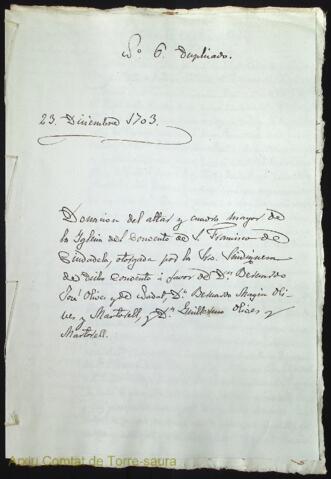 Nº 6. Duplicado.
23. Diciembre 1703.
Donacion del altar y cuadro mayor de
la Iglesia del convento de S. Francisco de
Ciudadela, otorgada por la
de dicho convento á favor de Dn. Bernardo
José Olives y de Nadal, Dn. Bernardo Magin Oli-
ves y Martorell, y Dn. Guillermo Olives y
Martorell.
Arxiu Comtat de Torre-saura